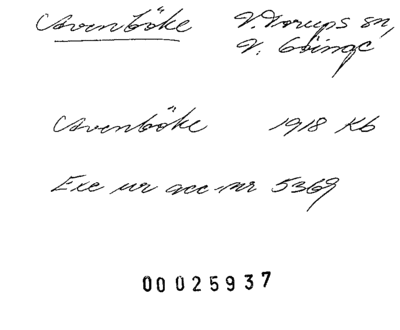 Avenböke V. Torups sn,
V. Göinge
Avenböke 1918 Kb
Exc ur acc nr 5369
00025937